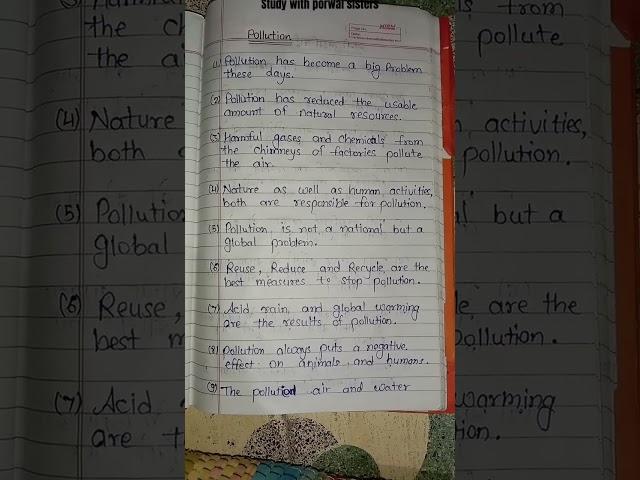 Study with porwal sisters
Pollution
(1) Pollution has become a big Problem
these days.
(2) Pollution has reduced the usable
amount of natural resources.
(3) Harmful gases and Chemicals from
the chimneys of factories pollute
the air.
(4) Nature as well as human activities,
both are responsible for pollution.
(5) Pollution is not a national but a
global problem.
(6) Reuse, Reduce and Recycle, are the
best measures to stop pollution.
(7) Acid rain, and global warming
are the results of pollution.
(8) Pollution always puts a negative
effect on animals and humans.
(9) The pollution air and water